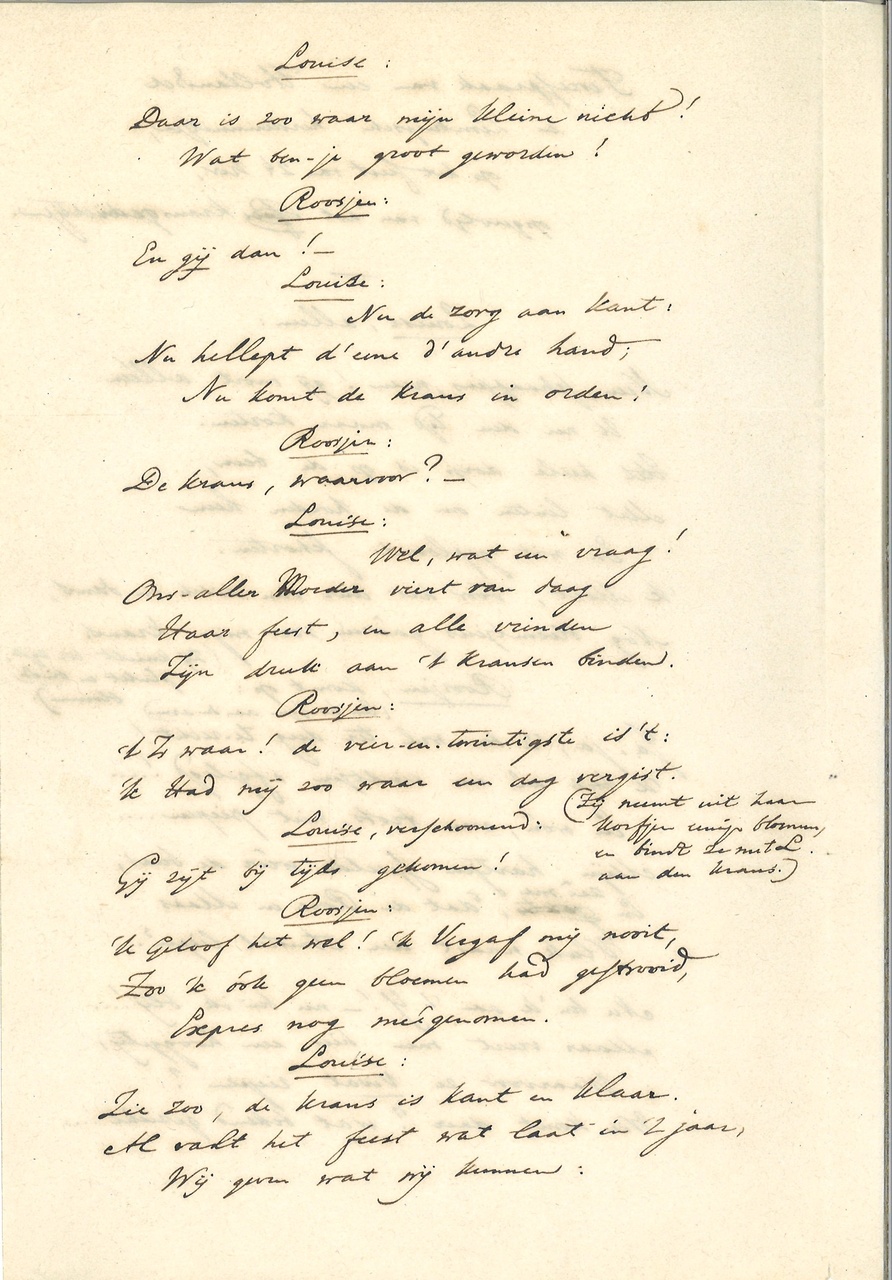 Louise :
Daar is zoo waar mijn kleine nicht !
Wat ben-je groot geworden !
Roosjen:
En gij dan ! —
Louise :
Nu de zorg aan kant :
Nu hellept d'eene d'andre hand ;
Nu komt de krans in orden !
Roosjen :
De krans, waarvoor ? —
Louise :
Wel, wat een vraag !
Ons-aller Moeder viert van daag
Haar feest, en alle vrinden
Zijn druk aan 't kransen binden.
Roosjen :
't Is waar ! de veir-en-twintigste is 't :
'k Had mij zoo waar een dag vergist.
Louise, verschoonend :
(Zij neemt uit haar
korfjen eenige bloemen,
en bindt ze met L.
aan den krans.)
Gij zijt bij tijds gekomen !
Roosjen :
'k Geloof het wel ! 'k Vergaf mij nooit,
Zoo 'k óók geen bloemen had gestrooid,
Expres nog meêgenomen.
Louise :
Zie zoo, de krans is kant en klaar.
Al valt het feest wat laat in 't jaar,
Wij geven wat wij kunnen :